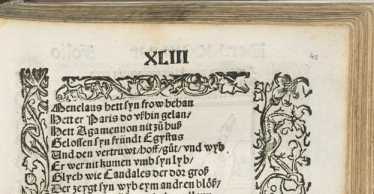 XLIII
Menelaus hett syn frow behan
Hett er Paris do vßhin gelan/
Hett Agamennon nit zů huß
Gelossen syn fründt Egystus
Und den vertruwt/hoff/gůt/vnd wyb
Er wer nit kumen vmb syn lyb/
Glych wie Candales der dor groß
Der zeygt syn wyb eym andren bloß/